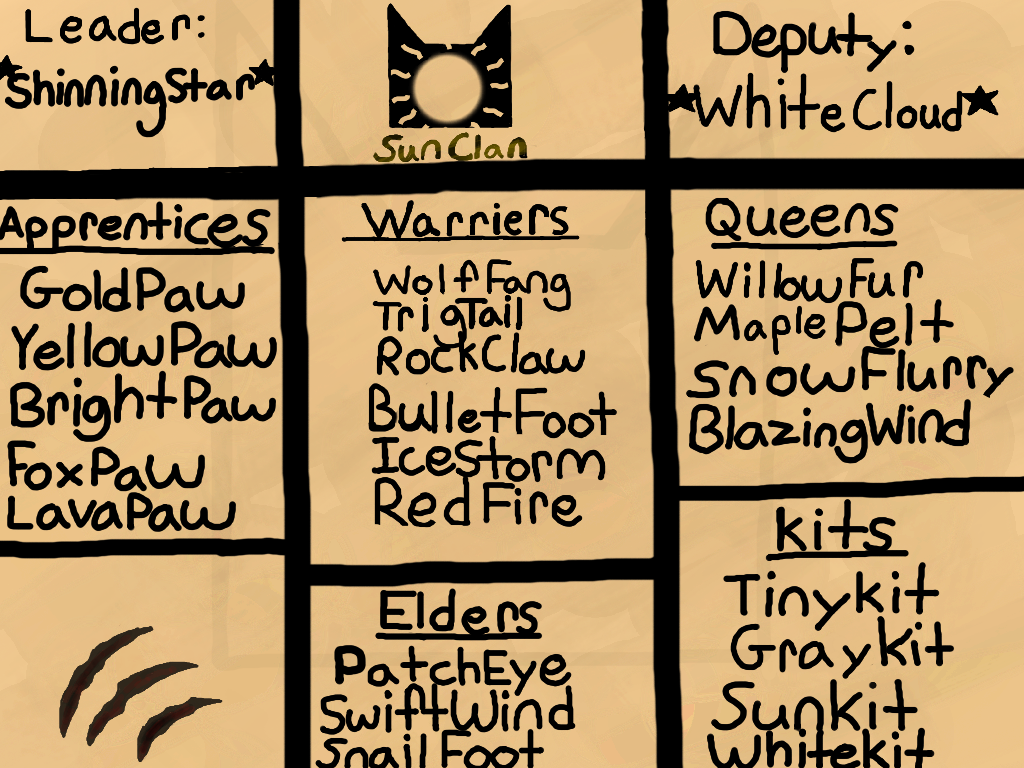 Leader:
ShinningStar
SunClan
Deputy:
WhiteCloud
Apprentices
GoldPaw
YellowPaw
BrightPaw
FoxPaw
LavaPaw
Warriers
WolfFang
TrigTail
RockClaw
BulletFoot
IceStorm
RedFire
Elders
PatchEye
SwiftWind
SnailFoot
Queens
WillowFur
MaplePelt
SnowFlurry
BlazingWind
Kits
Tinykit
Graykit
SunKit
Whitekit